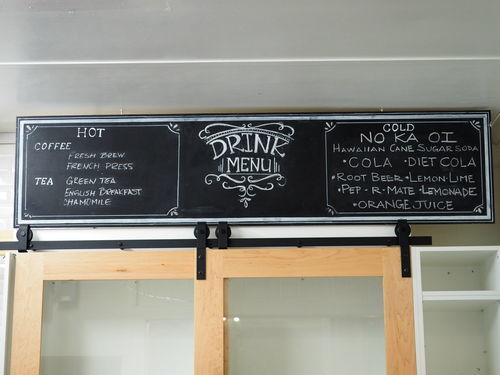 HOT
COFFEE
FRESH BREW
FRENCH PRESS
TEA GREEN TEA
ENGLISH BREAKFAST
CHAMOMILE
DRINK
MENU
COLD
NO KA OI
HAWAIIAN CANE SUGAR SODA
•COLA •DIET COLA
•ROOT BEER •LEMON-LIME
•PEP-R-MATE •LEMONADE
•ORANGE JUICE